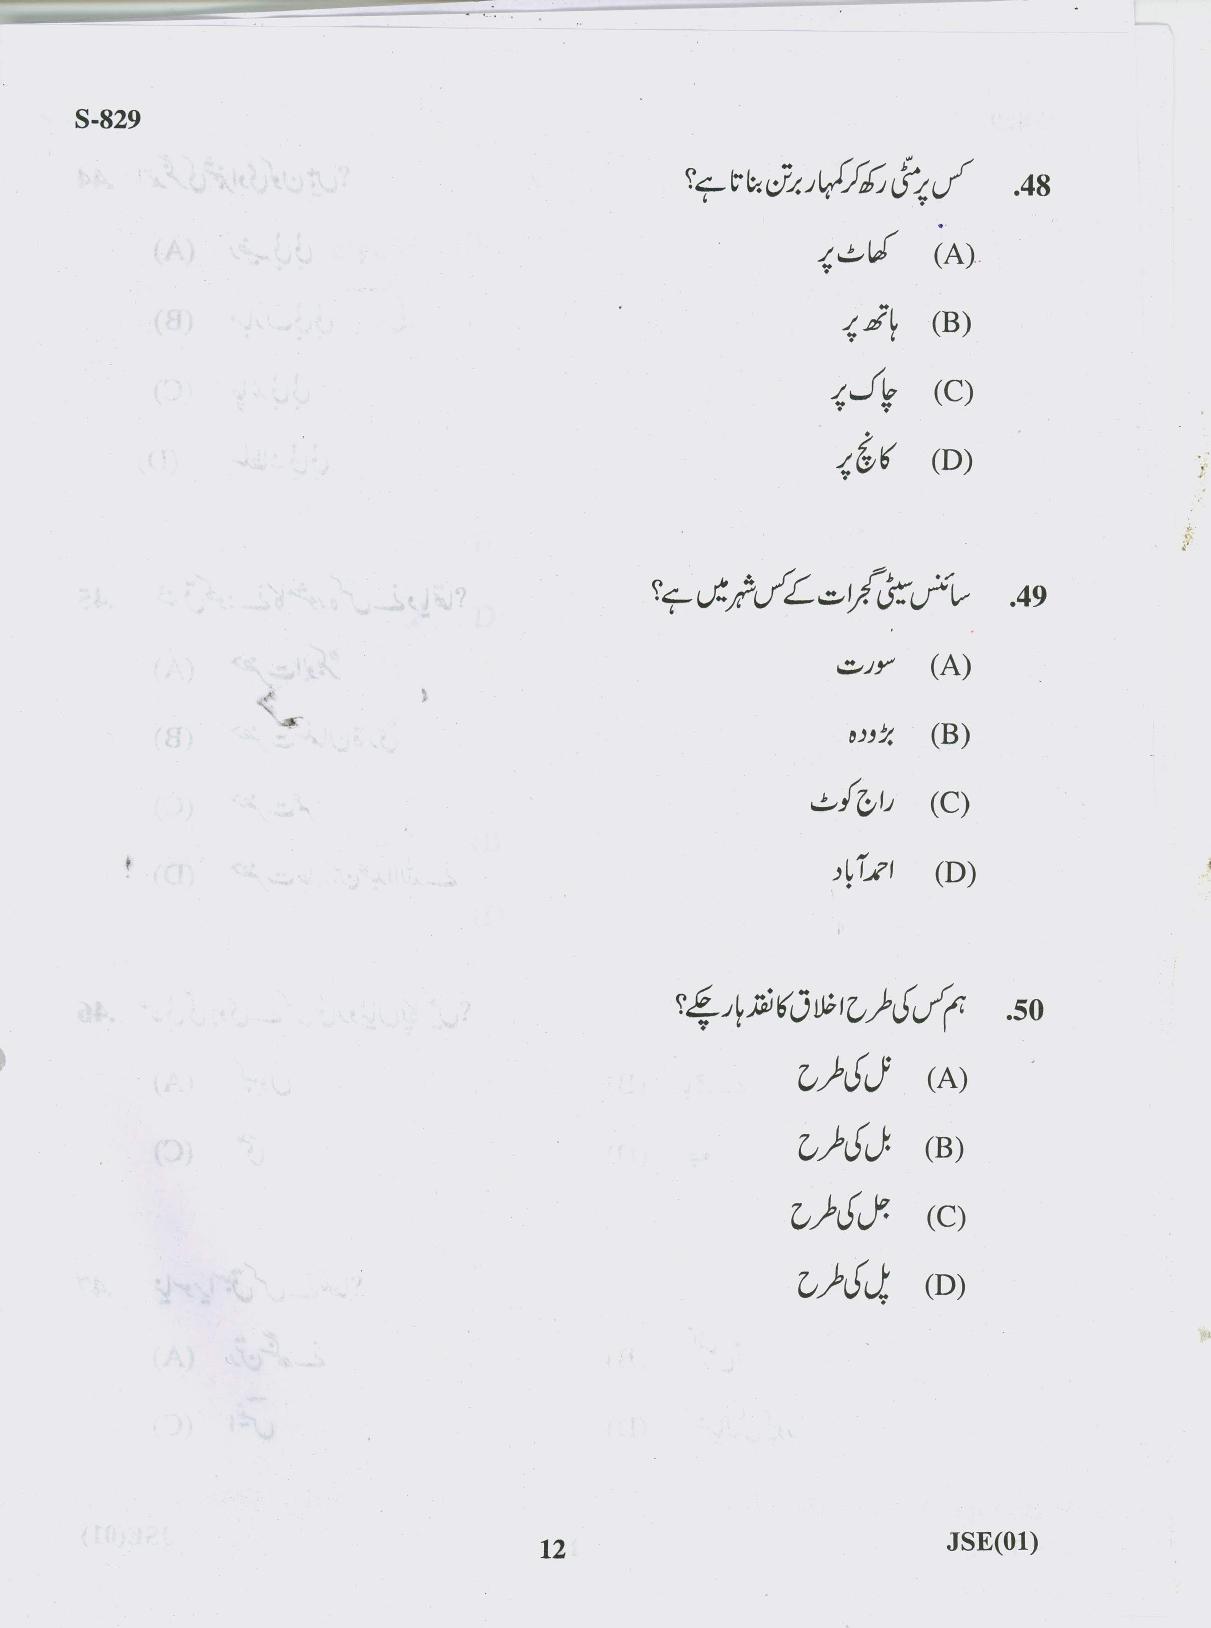 S-829
48. کس پر مٹّی رکھ کر کمہار برتن بناتا ہے؟
(A) کھاٹ پر
(B) ہاتھ پر
(C) چاک پر
(D) کانچ پر
49. سائنس سیٹی گجرات کے کس شہر میں ہے؟
(A) سورت
(B) بڑودہ
(C) راج کوٹ
(D) احمد آباد
50. ہم کس کی طرح اخلاق کا نقد ہار چکے؟
(A) نل کی طرح
(B) بل کی طرح
(C) جل کی طرح
(D) پل کی طرح
12
JSE(01)